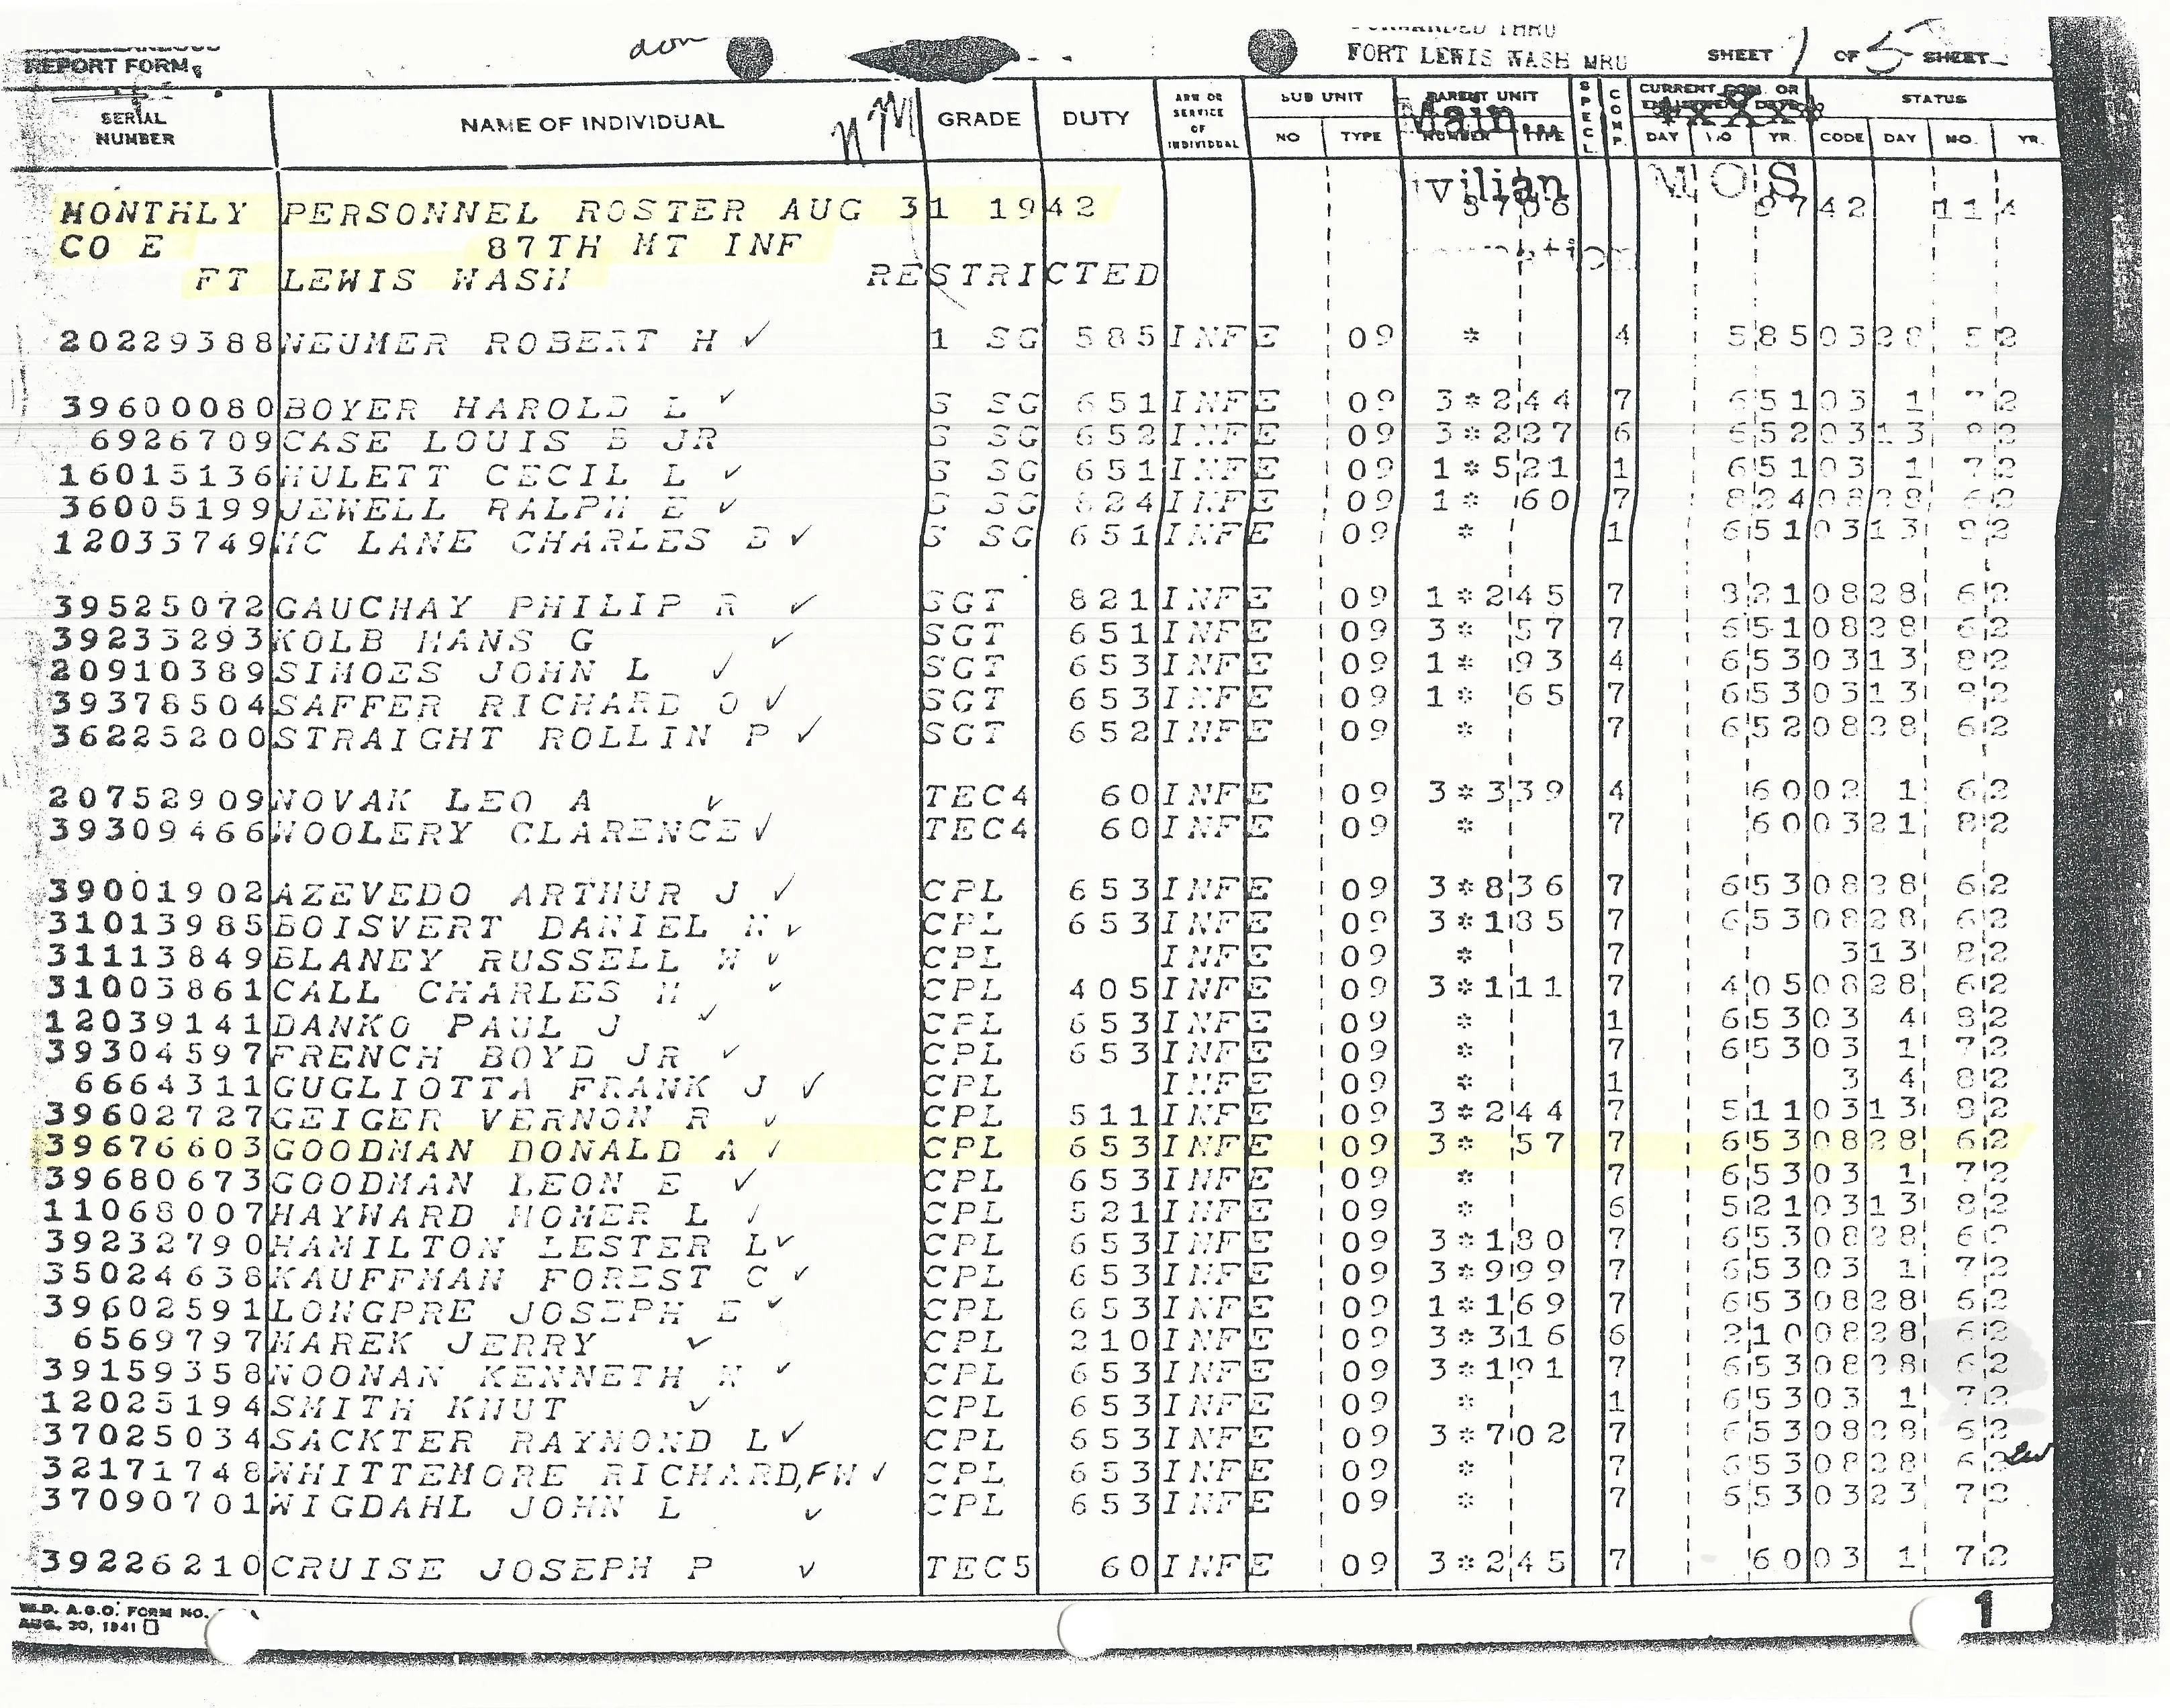 REPORT FORM
FORT LEWIS WASH MRU
SHEET 1 OF 5 SHEETS
SERIAL NUMBER NAME OF INDIVIDUAL GRADE DUTY ARM OR SERVICE OF INDIVIDUAL SUB UNIT NO TYPE PARENT UNIT NUMBER TYPE SPECL COMP. CURRENT DAY MO YR. STATUS CODE DAY MO. YR.
Main
MONTHLY PERSONNEL ROSTER AUG 31 1942
CO E 87TH MT INF
FT LEWIS WASH RESTRICTED
MOS
20229388 NEUMER ROBERT H 1 SG 585 INF E 09 * 4 5850328 52
39600080 BOYER HAROLD L S SG 651 INF E 09 3*244 7 65103 1 72
6926709 CASE LOUIS B JR S SG 652 INF E 09 3*227 6 6520313 82
16015136 HULETT CECIL L S SG 651 INF E 09 1*521 1 65103 1 72
36005199 JEWELL RALPH E S SG 824 INF E 09 1* 60 7 8240828 62
12033749 MC LANE CHARLES B S SG 651 INF E 09 * 1 6510313 82
39525072 GAUCHAY PHILIP R SGT 821 INF E 09 1*245 7 8210828 62
39233293 KOLB HANS G SGT 651 INF E 09 3* 57 7 6510828 62
20910389 SIMOES JOHN L SGT 653 INF E 09 1* 93 4 6530313 82
39378504 SAFFER RICHARD O SGT 653 INF E 09 1* 65 7 6530313 82
36225200 STRAIGHT ROLLIN P SGT 652 INF E 09 * 7 6520828 62
20752909 NOVAK LEO A TEC4 60 INF E 09 3*339 4 6002 1 62
39309466 WOOLERY CLARENCE TEC4 60 INF E 09 * 7 600321 82
39001902 AZEVEDO ARTHUR J CPL 653 INF E 09 3*836 7 6530828 62
31013985 BOISVERT DANIEL N CPL 653 INF E 09 3*185 7 6530828 62
31113849 BLANEY RUSSELL W CPL INF E 09 * 7 313 82
31003861 CALL CHARLES H CPL 405 INF E 09 3*111 7 4050828 62
12039141 DANKO PAUL J CPL 653 INF E 09 * 1 65303 4 82
39304597 FRENCH BOYD JR CPL 653 INF E 09 * 7 65303 1 72
6664311 GUGLIOTTA FRANK J CPL INF E 09 * 1 3 4 82
39602727 GEIGER VERNON R CPL 511 INF E 09 3*244 7 5110313 82
39676603 GOODMAN DONALD A CPL 653 INF E 09 3* 57 7 6530828 62
39680673 GOODMAN LEON E CPL 653 INF E 09 * 7 65303 1 72
11068007 HAYWARD HOMER L CPL 521 INF E 09 * 6 5210313 82
39232790 HAMILTON LESTER L CPL 653 INF E 09 3*180 7 6530828 62
35024638 KAUFFMAN FOREST C CPL 653 INF E 09 3*999 7 65303 1 72
39602591 LONGPRE JOSEPH E CPL 653 INF E 09 1*169 7 6530828 62
6569797 MAREK JERRY CPL 210 INF E 09 3*316 6 2100828 62
39159358 NOONAN KENNETH N CPL 653 INF E 09 3*191 7 6530828 62
12025194 SMITH KNUT CPL 653 INF E 09 * 1 65303 1 72
37025034 SACKTER RAYMOND L CPL 653 INF E 09 3*702 7 6530828 62
32171748 WHITTEMORE RICHARD,FW CPL 653 INF E 09 * 7 6530828 62
37090701 WIGDAHL JOHN L CPL 653 INF E 09 * 7 6530323 72
39226210 CRUISE JOSEPH P TEC5 60 INF E 09 3*245 7 6003 1 72
W.D. A.G.O. FORM NO.
AUG. 30, 1941
1